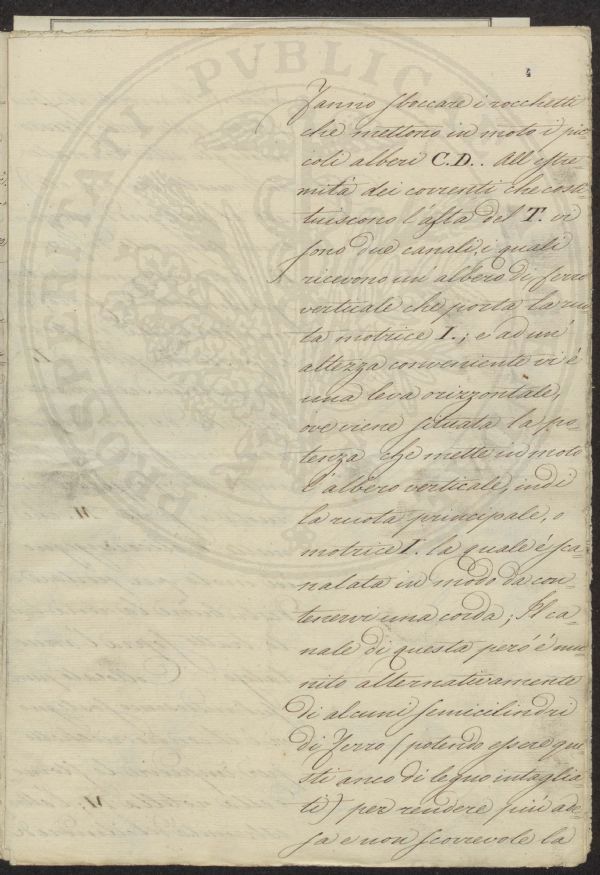 4
fanno sboccare i rocchetti
che mettono in moto i pic-
coli alberi C.D.. All'estre-
mità dei correnti che costi-
tuiscono l'asta del T. vi
sono due canali, i quali
ricevono un' albero di ferro
verticale che porta la ruo-
ta motrice I.; e ad un'
altezza conveniente vi è
una leva orizzontale,
ove viene situata la po-
tenza che mette in moto
l'albero verticale, indi
la ruota principale, o
motrice I. la quale è sca-
nalata in modo da con-
tenervi una corda; Il ca-
nale di questa però è mu-
nito alternativamente
di alcuni semicilindri
di ferro (potendo essere que-
sti anco di legno intaglia-
ti) per rendere più ade-
sa e non scorrevole la
PROSPERITATI PUBLICAE